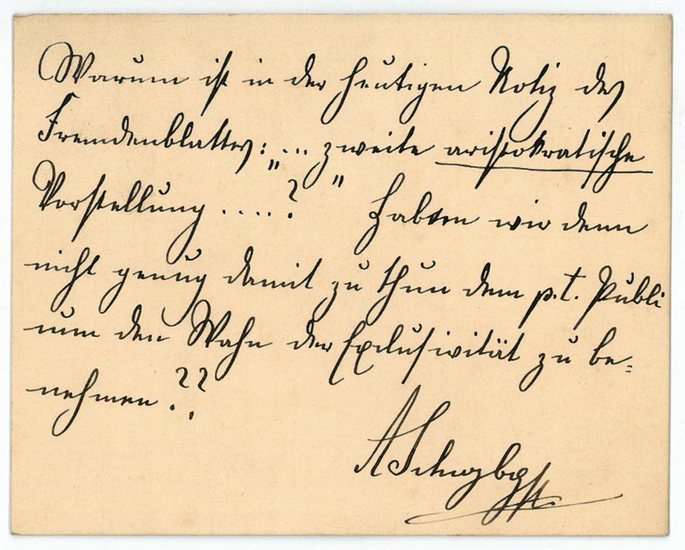 Warum ist in der heutigen Notiz des
Fremdenblattes: „... zweite aristokratische
Vorstellung ....?" Haben wir denn
nicht genug damit zu thun dem p.t. Publi
um den Wahn der Exclusivität zu be=
nehmen??